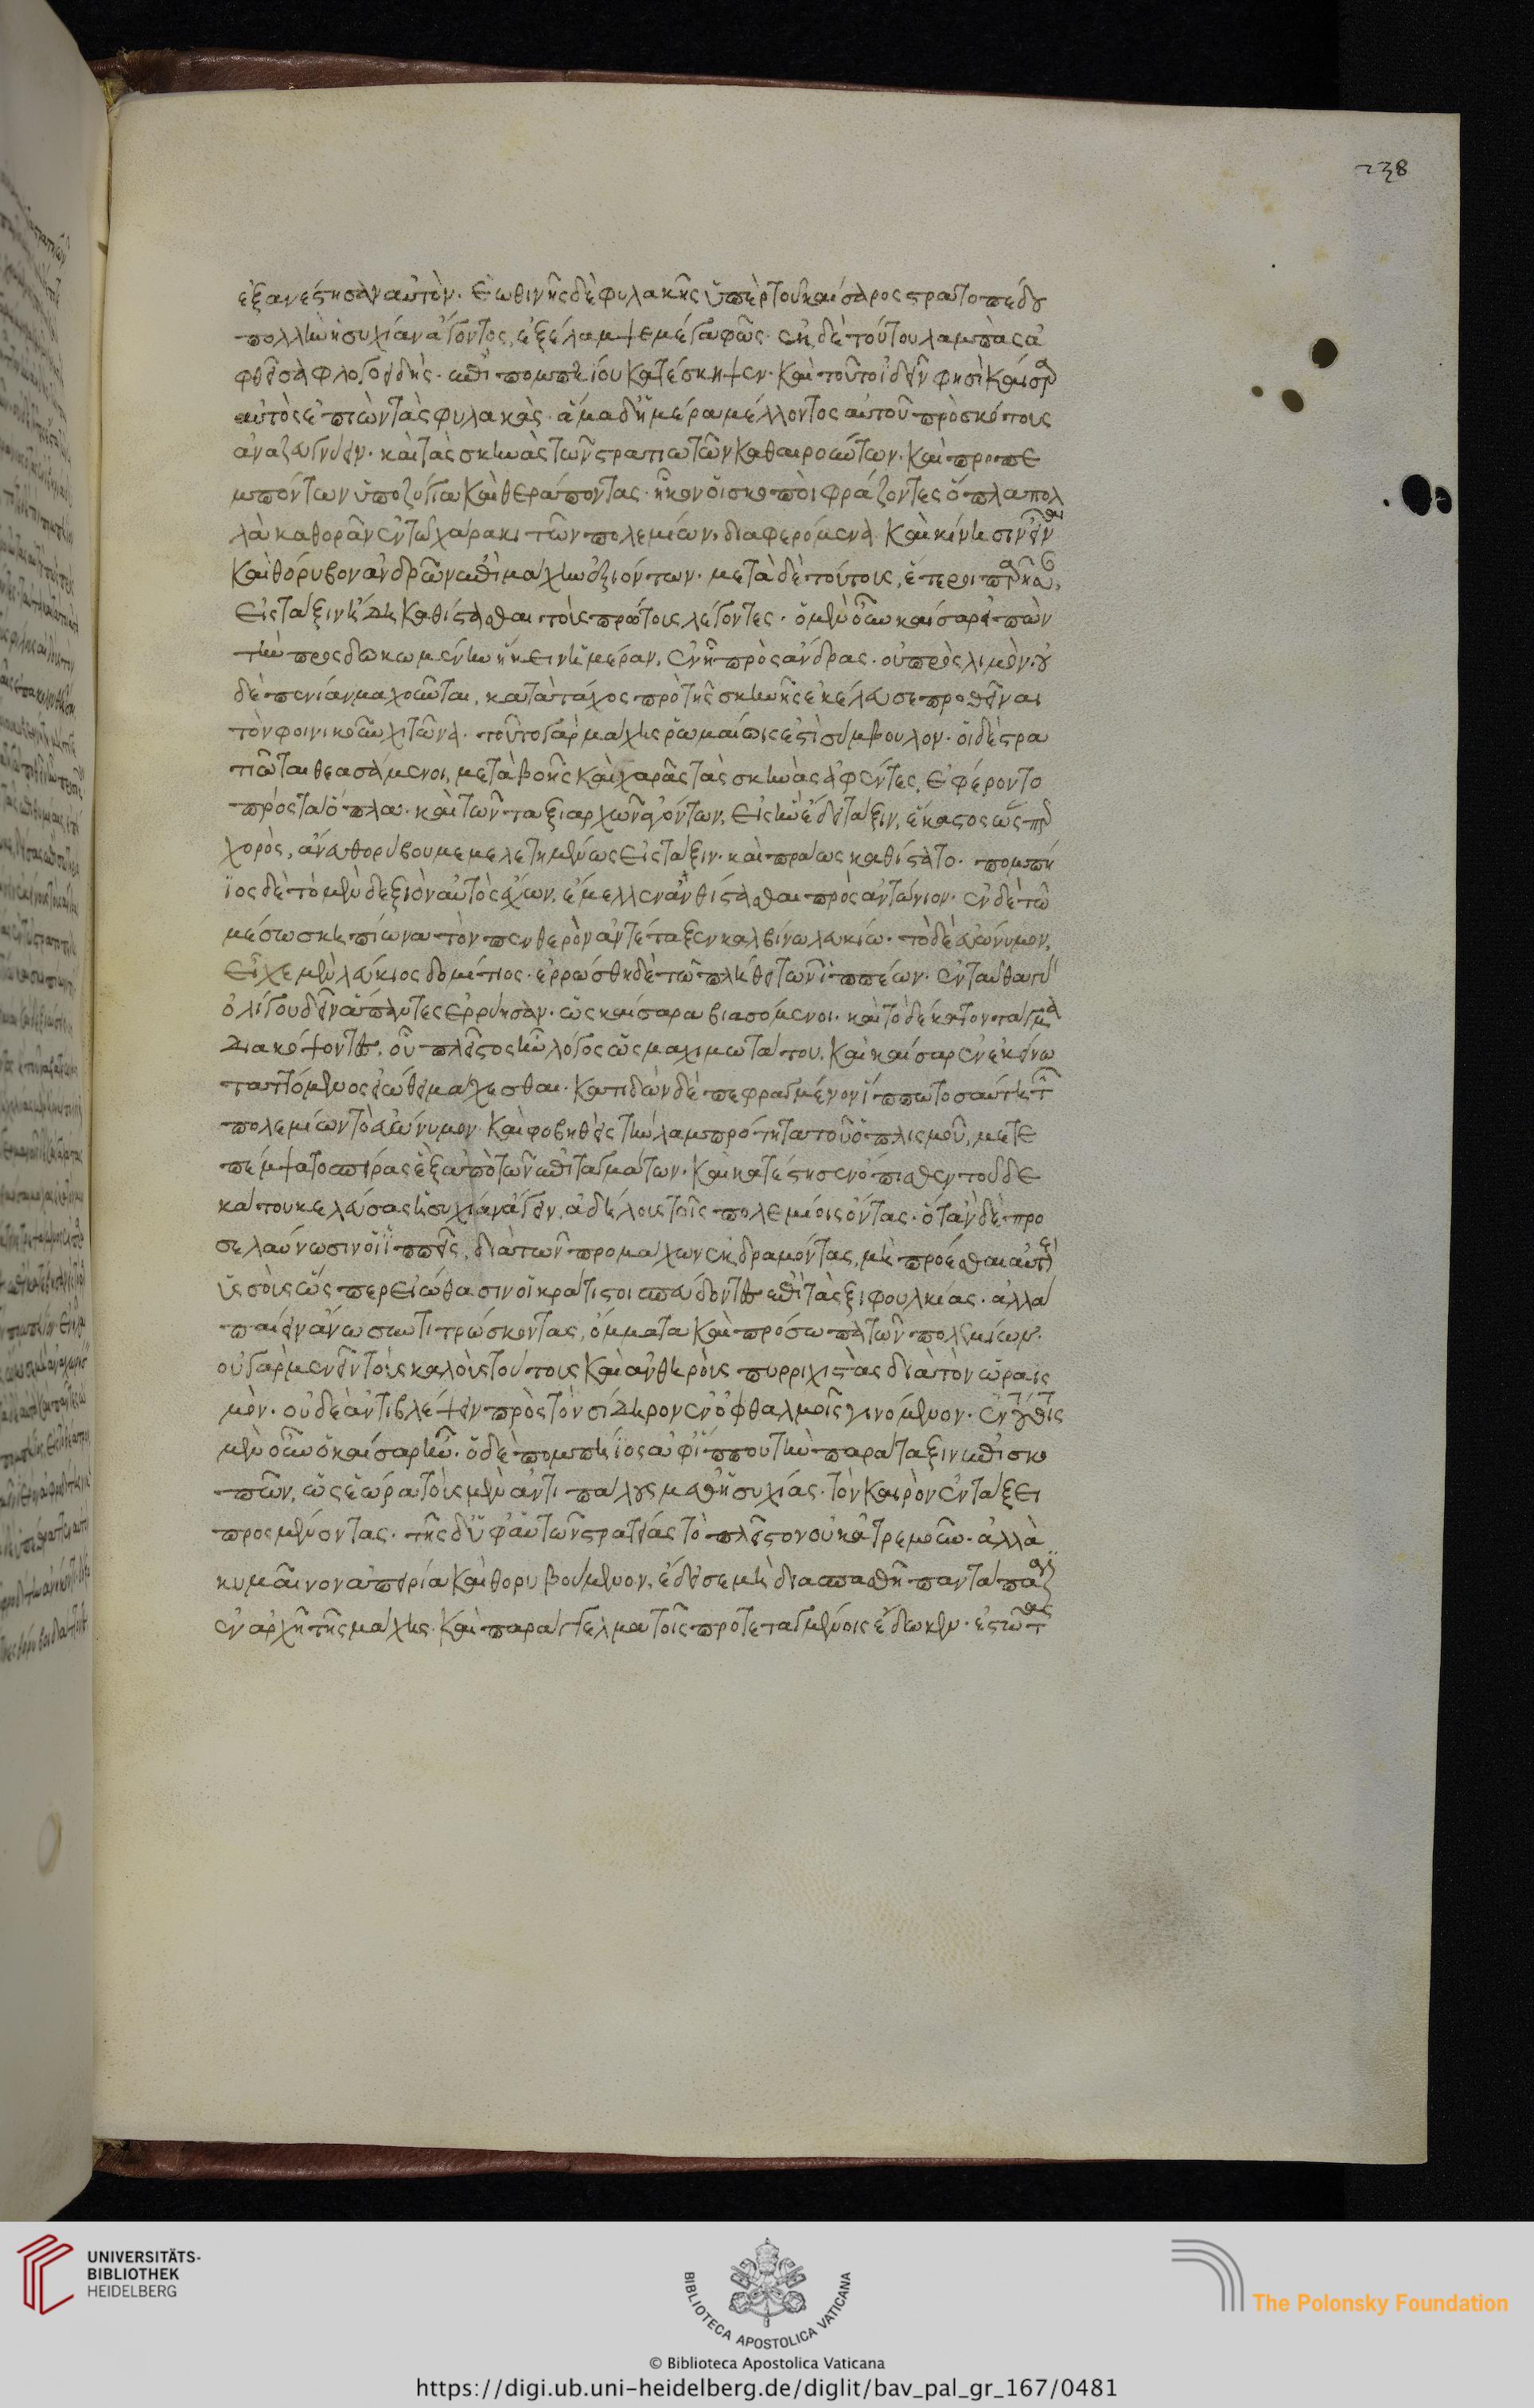 238
ἐξανέστησαν αὐτόν. ἑωθινῆς δὲ φυλακῆς ὑπὲρ τοῦ καίσαρος στρατοπέδου
πολλὴν ἡσυχίαν ἄγοντος, ἐξέλαμψε μέγα φῶς. ἐκ δὲ τούτου λαμπὰς ἀ
φθεῖσα φλογοειδής. ἐπὶ πομπηίου κατέσκηψεν. καὶ τοῦτο ἰδεῖν φησὶ καίσαρ
αὐτὸς ἐπιὼν τὰς φυλακὰς. ἅμα δ' ἡμέρα μέλλοντος αὐτοῦ πρὸς κόπους
ἀναζευγνύειν. καὶ τὰς σκηνὰς τῶν στρατιωτῶν καθαιρούντων. καὶ προπε
μπόντων ὑποζύγια καὶ θεράποντας. ἧκον οἱ σκοποὶ φράζοντες ὅπλα πολ
λὰ καθορᾶν ἐν τῷ χάρακι τῶν πολεμίων διαφερόμενα. καὶ κίνησιν εἶναι
καὶ θόρυβον ἀνδρῶν ἐπὶ μάχην ἐξιόντων. μετὰ δὲ τούτους, ἕτεροι παρῆσαν,
εἰς τάξιν ἤδη καθίστασθαι τοὺς πρώτους λέγοντες. ὁ μὲν οὖν καίσαρ εἰπὼν
τὴν προσδωκωμένην ἥκειν ἡμέραν, ἐν ᾗ πρὸς ἄνδρας. οὐ πρὸς λιμὸν. οὐ
δὲ πενίαν μαχοῦνται, κατὰ τάχος πρὸ τῆς σκηνῆς ἐκέλευσε προθεῖναι
τὸν φοινικοῦν χιτῶνα. τοῦτο γὰρ μάχης ῥωμαίοις ἐστὶ σύμβουλον. οἱ δὲ στρα
τιῶται θεασάμενοι, μετὰ βοῆς καὶ χαρᾶς τὰς σκηνὰς ἀφέντες, ἐφέροντο
πρὸς τὰ ὅπλα. καὶ τῶν ταξιαρχῶν ἀγόντων, εἰς ἣν ἔδει τάξιν, ἕκαστος ὥσπερ
χορὸς, ἄνευ θορύβου μεμελετημένως εἰς τάξιν. καὶ πράως καθίστατο. πομπή
ϊος δὲ τὸ μὲν δεξιὸν αὐτὸς ἔχων, ἔμελλεν ἀνθίστασθαι πρὸς ἀντώνιον. ἐν δὲ τῶ
μέσω σκηπίωνα τὸν πενθερὸν ἀντέταξεν καλβίνω λακίω. τὸ δὲ εὐώνυμον,
εἶχε μὲν λεύκιος δομέτιος. ἐρρώσθη δὲ τῶ πλήθει τῶν ἱππέων. ἐνταῦθα γὰρ
ὀλίγου δεῖν ἅπαντες ἐρρύησαν. ὡς καίσαρα βιασόμενοι. καὶ τὸ δέκατον τάγμα
διακόψοντες. οὗ πλεῖστος ἦν λόγος ὡς μαχιμωτάτου. καὶ καίσαρ ἐν ἐκείνω
ταττόμενος εἰώθει μάχεσθαι. κατιδὼν δὲ πεφραγμένον ἵππω τοσαύτη τῶν
πολεμίων τὸ εὐώνυμον. καὶ φοβηθεὶς τὴν λαμπρότητα τοῦ ὁπλισμοῦ, μετε
πέμψατο σπείρας ἓξ ἀπὸ τῶν ἐπιταγμάτων. καὶ κατέστησεν ὄπισθεν τοῦ δε
κάτου κελεύσας ἡσυχίαν ἄγειν, ἀδήλους τοῖς πολεμίοις ὄντας. ὅταν δὲ προ
σελαύνωσιν οἱ ἱππεῖς, διὰ τῶν προμάχων ἐκδραμόντας, μὴ προέσθαι αὐτοὺς
ὑσσοὺς ὥσπερ εἰώθασιν οἱ κράτιστοι σπεύδοντες ἐπὶ τὰς ξιφουλκίας. ἀλλὰ
παίειν ἄνω συντιτρώσκοντας, ὄμματα καὶ πρόσωπα τῶν πολεμίων.
οὐ γὰρ μενεῖν τοὺς καλοὺς τούτους καὶ ἀνθηροὺς πυρριχιστὰς διὰ τὸν ὡραϊς
μὸν. οὐδὲ ἀντιβλέψειν πρὸς τὸν σίδηρον ἐν ὀφθαλμοῖς γινόμενον. ἐν τούτοις
μὲν οὖν ὁ καίσαρ ἦν. ὁ δὲ πομπήϊος ἀφ' ἵππου τὴν παράταξιν ἐπισκο
πῶν, ὡς ἑώρα τοὺς μὲν ἀντιπάλους μεθ' ἡσυχίας. τὸν καιρὸν ἐν τάξει
προσμένοντας. τῆς δ' ὑφ' αὑτῶν στρατείας τὸ πλεῖστον οὐκ ἀτρεμοῦν. ἀλλὰ
κυμαῖνον ἀπειρία καὶ θορυβούμενον, ἔδεισε μὴ διασπασθῆ παντάπασιν
ἐν ἀρχῆ τῆς μάχης. καὶ παράγγελμα τοῖς προτεταγμένοις ἔδωκεν. ἑστῶτας
UNIVERSITÄTS-
BIBLIOTHEK
HEIDELBERG
BIBLIOTECA APOSTOLICA VATICANA
The Polonsky Foundation
© Biblioteca Apostolica Vaticana
https://digi.ub.uni-heidelberg.de/diglit/bav_pal_gr_167/0481